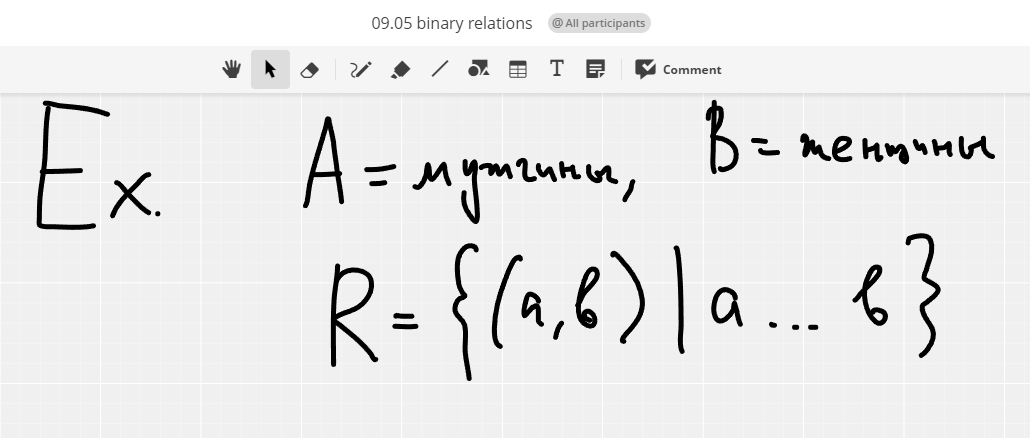 09.05 binary relations @ All participants
T Comment
Ex. A = мужчины, B = женщины
R = {(a,b) | a ... b}